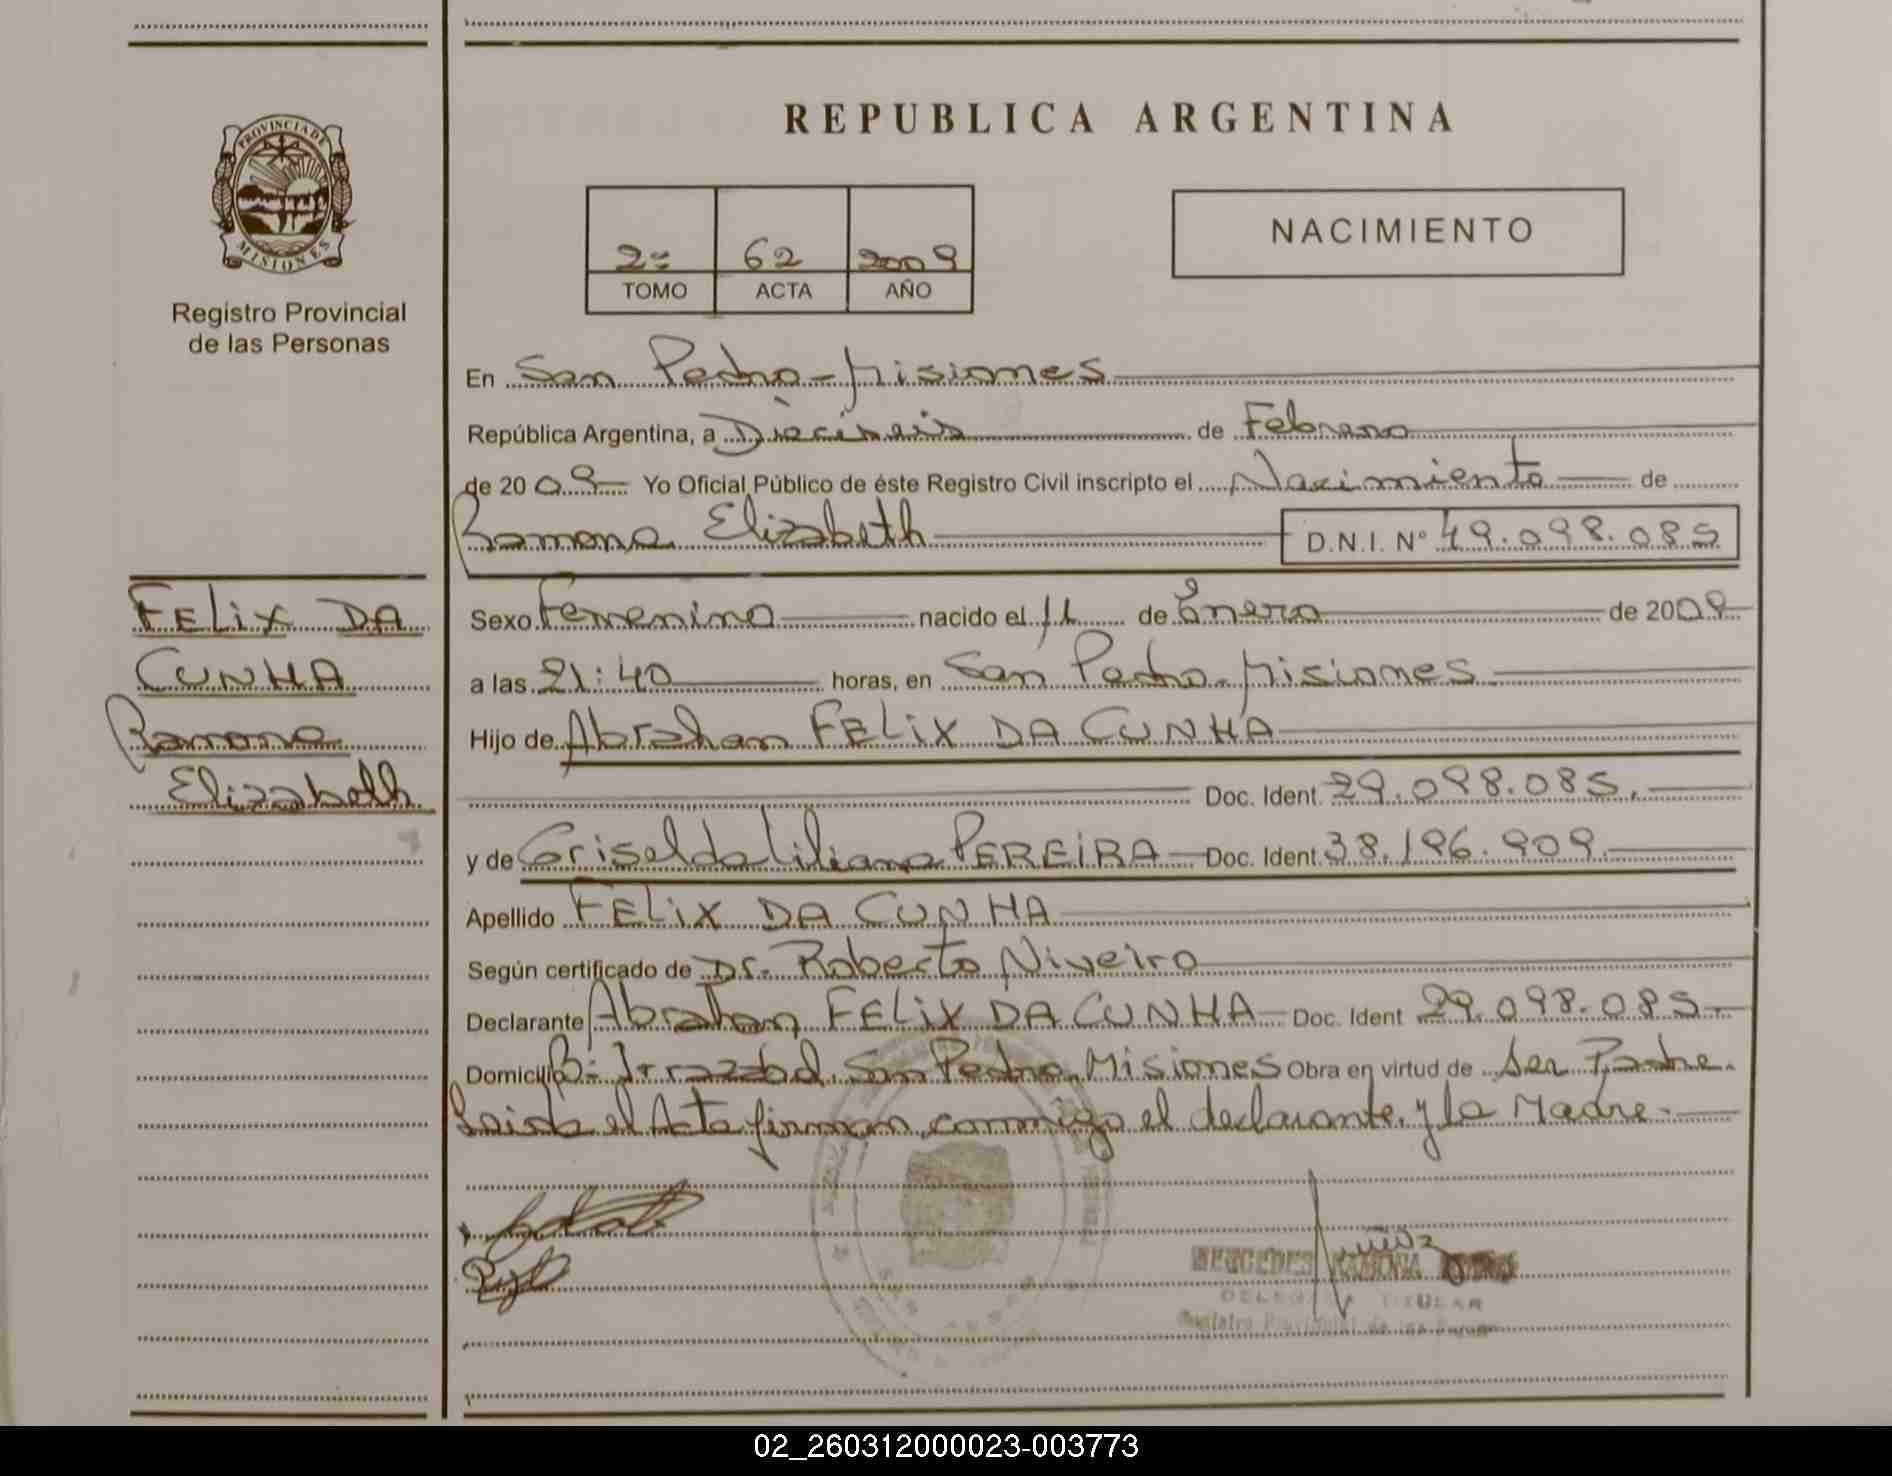 REPUBLICA ARGENTINA
PROVINCIA DE
MISIONES
Registro Provincial
de las Personas
2º 62 2009
TOMO ACTA AÑO
NACIMIENTO
En San Pedro-Misiones
República Argentina, a Dieciseis de Febrero
de 2009 Yo Oficial Público de éste Registro Civil inscripto el Nacimiento de
Ramona Elizabeth D.N.I. Nº 49.098.085
FELIX DA
CUNHA
Ramona
Elizabeth
Sexo Femenino nacido el 11 de Enero de 2009
a las 21:40 horas, en San Pedro-Misiones
Hijo de Abrahan FELIX DA CUNHA
Doc. Ident. 29.098.085.
y de Griselda Liliana PEREIRA Doc. Ident. 38.196.909.
Apellido FELIX DA CUNHA
Según certificado de Dr. Roberto Niveiro
Declarante Abrahan FELIX DA CUNHA Doc. Ident 29.098.085.
Domicilio Bº Irrazabal San Pedro, Misiones Obra en virtud de ser Padre.
Leida el Acta firman conmigo el declarante y la Madre.
MERCEDES RAMONA
DELEGADA TITULAR
Registro Provincial de las Personas
02_260312000023-003773